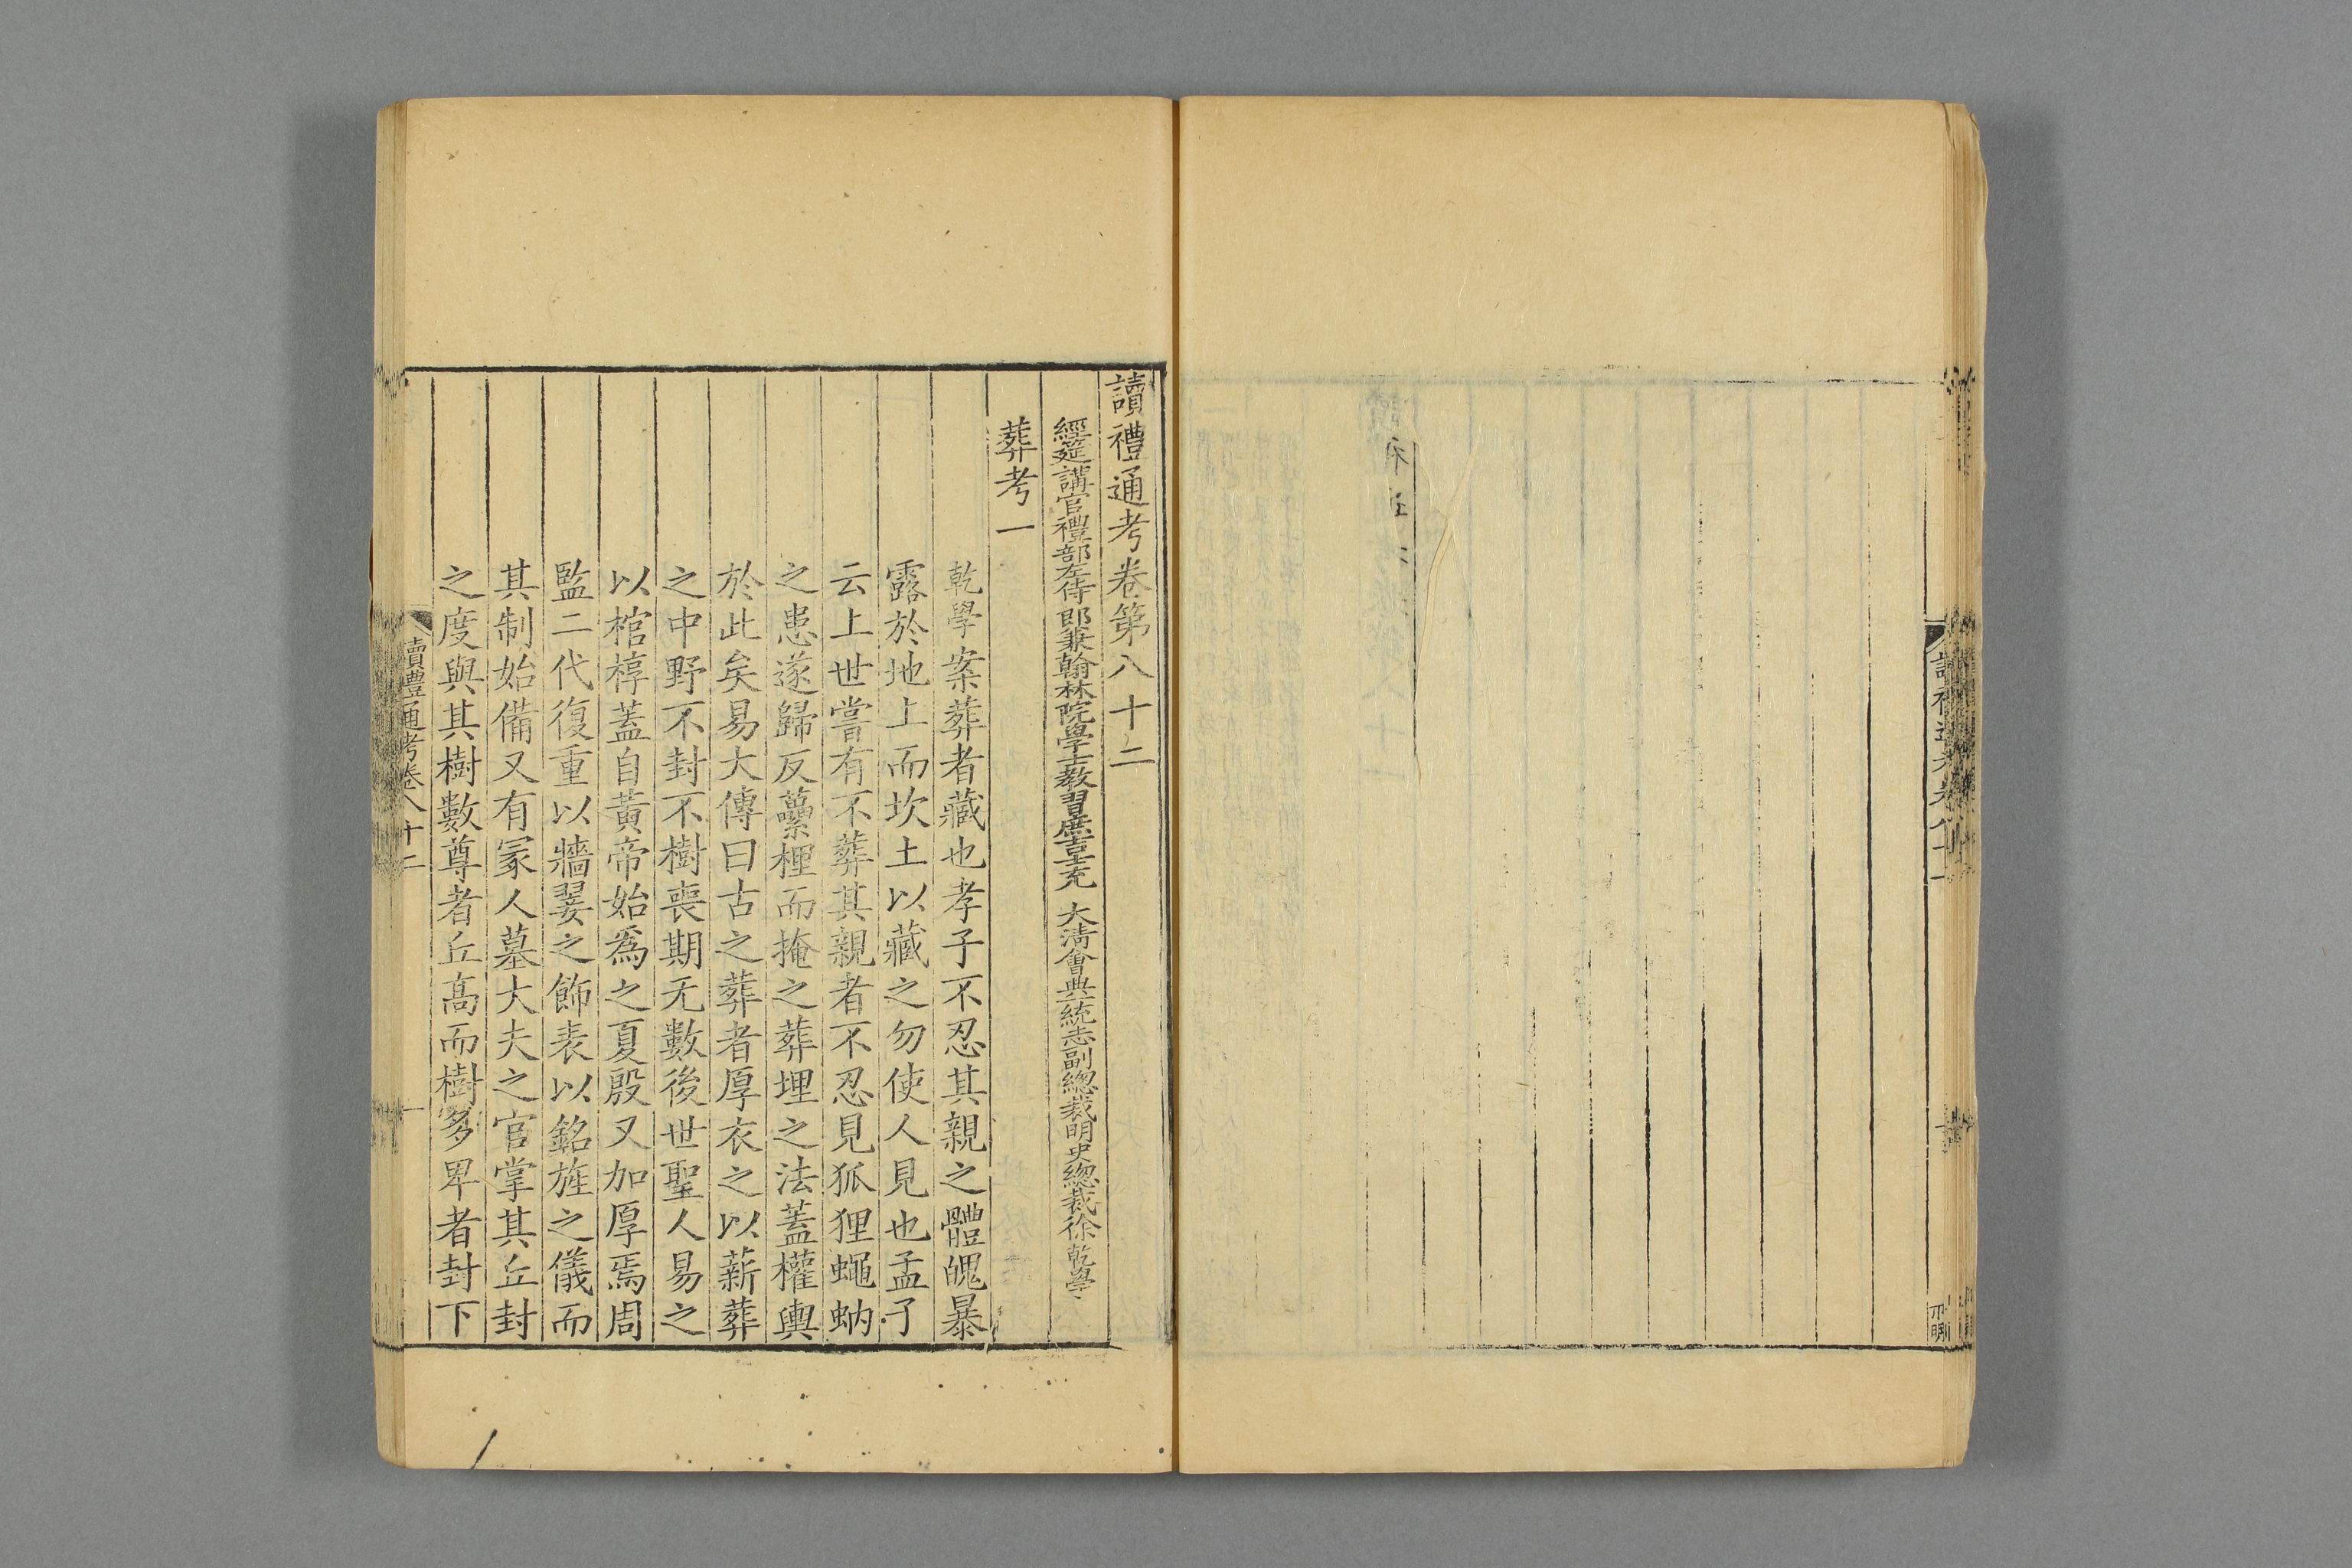 讀禮通考卷第八十二
經筵講官禮部左侍郎兼翰林院學士教習庶吉士充 大清會典一統志副總裁明史總裁徐乾學
葬考一
乾學案葬者藏也孝子不忍其親之體魄暴
露於地上而坎土以藏之勿使人見也孟子
云上世嘗有不葬其親者不忍見狐狸蠅蚋
之患遂歸反虆梩而掩之葬埋之法蓋權輿
於此矣易大傳曰古之葬者厚衣之以薪葬
之中野不封不樹喪期无數後世聖人易之
以棺椁蓋自黃帝始爲之夏殷又加厚焉周
監二代復重以牆翣之飾表以銘旌之儀而
其制始備又有冢人墓大夫之官掌其丘封
之度與其樹數尊者丘高而樹多卑者封下
讀禮通考卷八十二
一